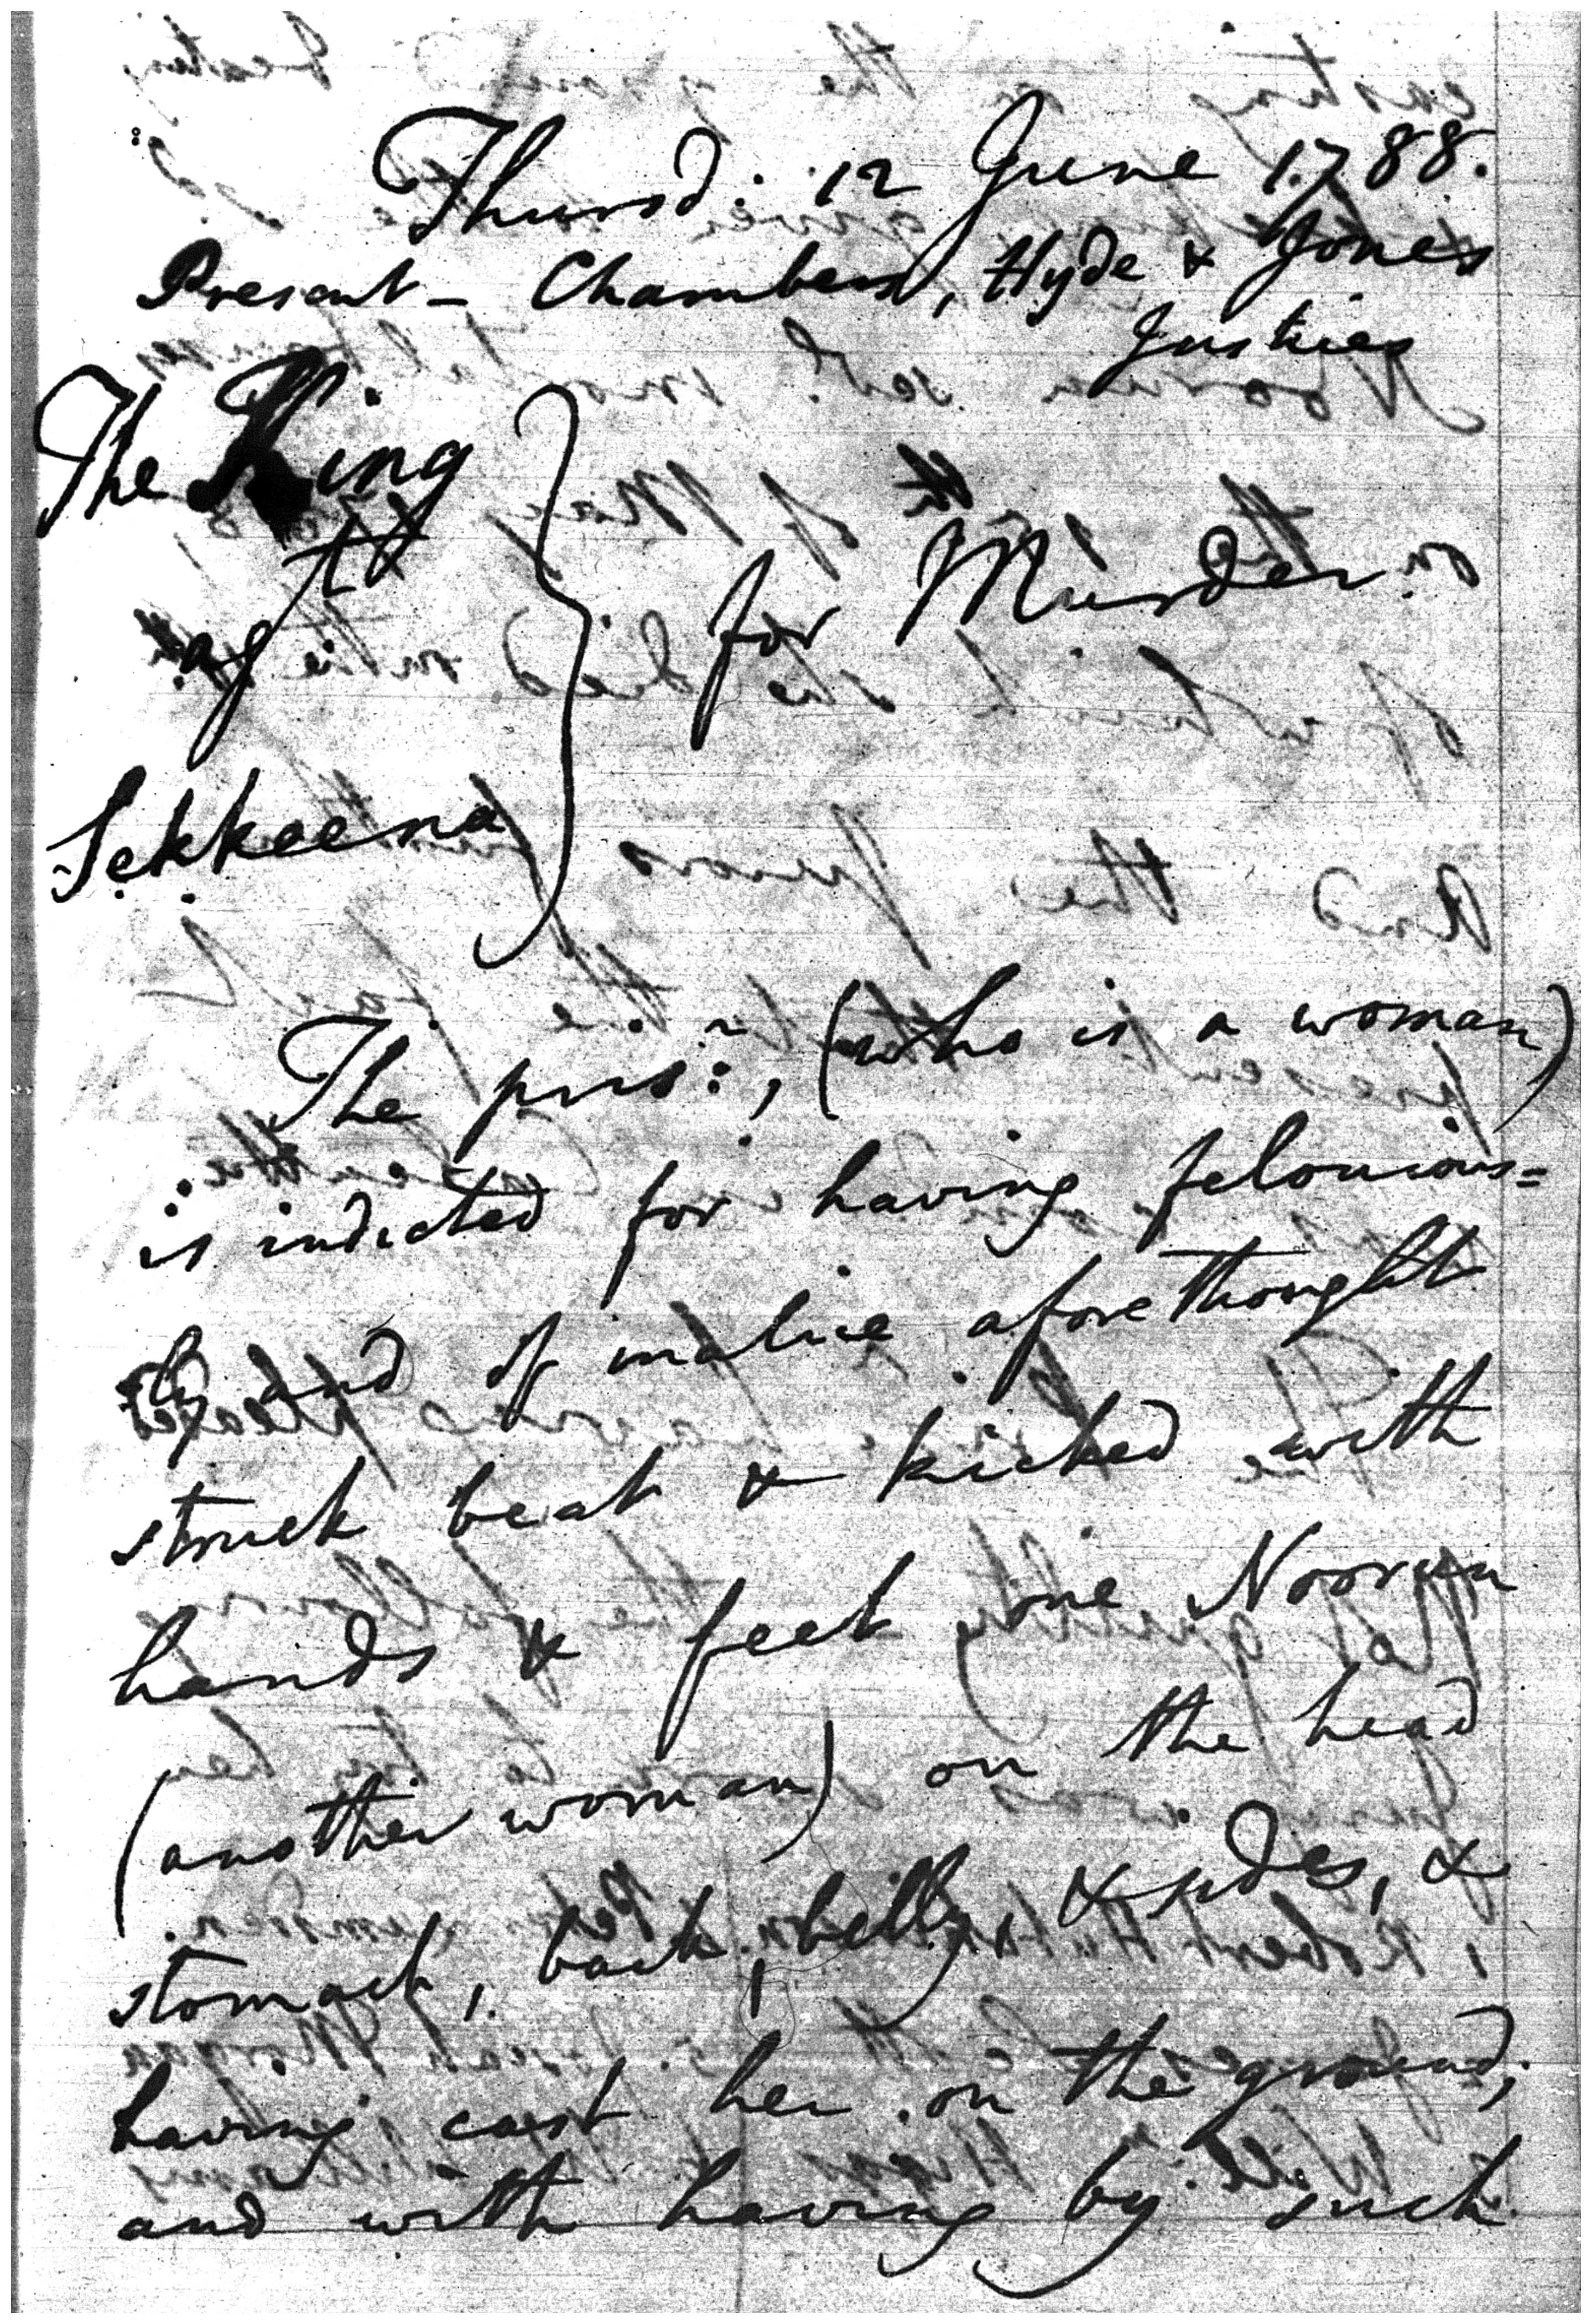 Thursd: 12 June 1788.
Present - Chambers, Hyde & Jones
Justices
The King
agst
Sekkeena
for Murder.
The pris:r, (who is a woman)
is indicted for having felonious=
ly and of malice aforethought
struck beat & kicked with
hands & feet one Noorun
(another woman) on the head
stomach, back, belly, & sides, &
having cast her on the ground;
and with having by such